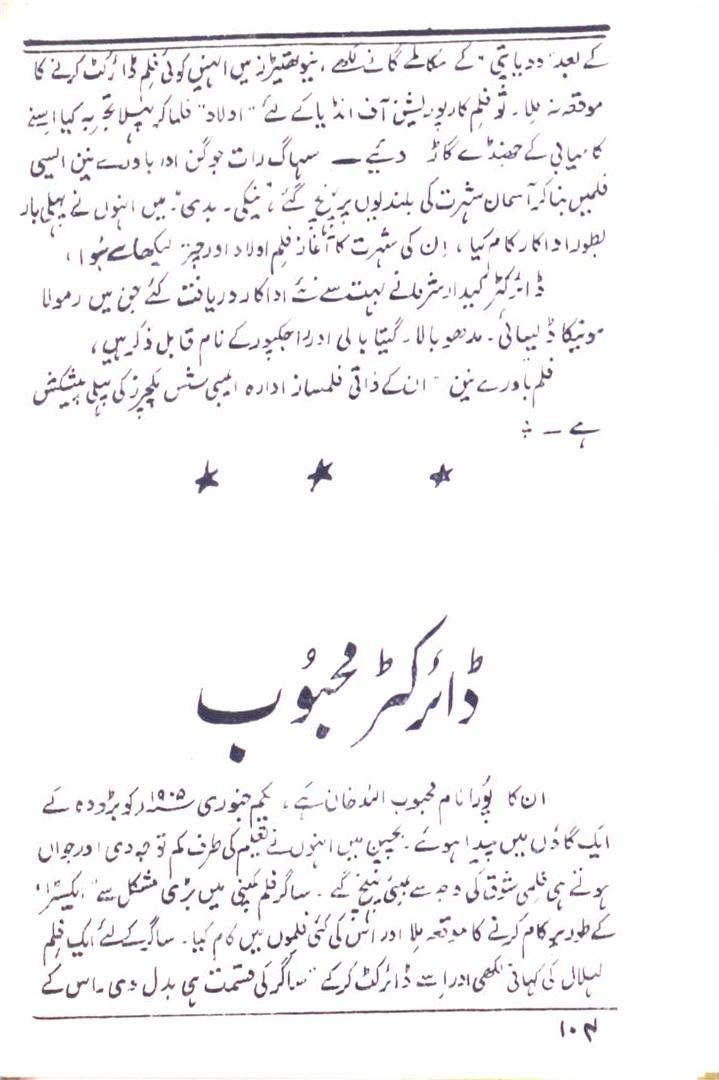 کے بعد "ودیاپتی" کے مکالمے گانے لکھے، نیو تھیٹرز میں انہیں کوئی فلم ڈائرکٹ کرنے کا
موقعہ نہ ملا۔ تو فلم کارپوریشن آف انڈیا کے لئے "اولاد" فلما کر پہلا تجربہ کیا اسنے
کامیابی کے جھنڈے گاڑ دئیے — سہاگ رات جوگن اور باورے نین ایسی
فلمیں بنا کر آسمان شہرت کی بلندیوں پر پہنچ گئے، نیکی۔ بدی۔ میں انہوں نے پہلی بار
بطور اداکار کام کیا، اِن کی شہرت کا آغاز فلم اولاد اور چتر لیکھا سے ہُوا،
ڈائرکٹر کیدار شرما نے بہت سے نئے اداکار دریافت کئے جن میں رمولا
مونیکا ڈیسائی۔ مدھو بالا۔ گیتا بالی اور راجکپور کے نام قابل ذکر ہیں،
فلم باورے نین۔ ان کے ذاتی فلمساز ادارہ ایمبی شس پکچرز کی پہلی پیشکش
ہے —
ڈائرکٹر محبُوب
ان کا پُورا نام محبوب اللہ خان ہے، یکم جنوری ۱۹۰۵ء کو بڑودہ کے
ایک گاؤں میں پیدا ہوئے۔ بچپن میں انہوں نے تعلیم کی طرف کم توجہ دی اور جواں
ہوتے ہی فلمی شوق کی وجہ سے بمبئی پہنچ گئے۔ ساگر فلم کمپنی میں بڑی مشکل سے "ایکسٹرا"
کے طور پر کام کرنے کا موقعہ ملا اور اس کی کئی فلموں میں کام کیا۔ ساگر کے لئے ایک فلم
لہلال کی کہانی لکھی اور اسے ڈائرکٹ کر کے "ساگر کی قسمت ہی بدل دی۔ اس کے
۱۰۴